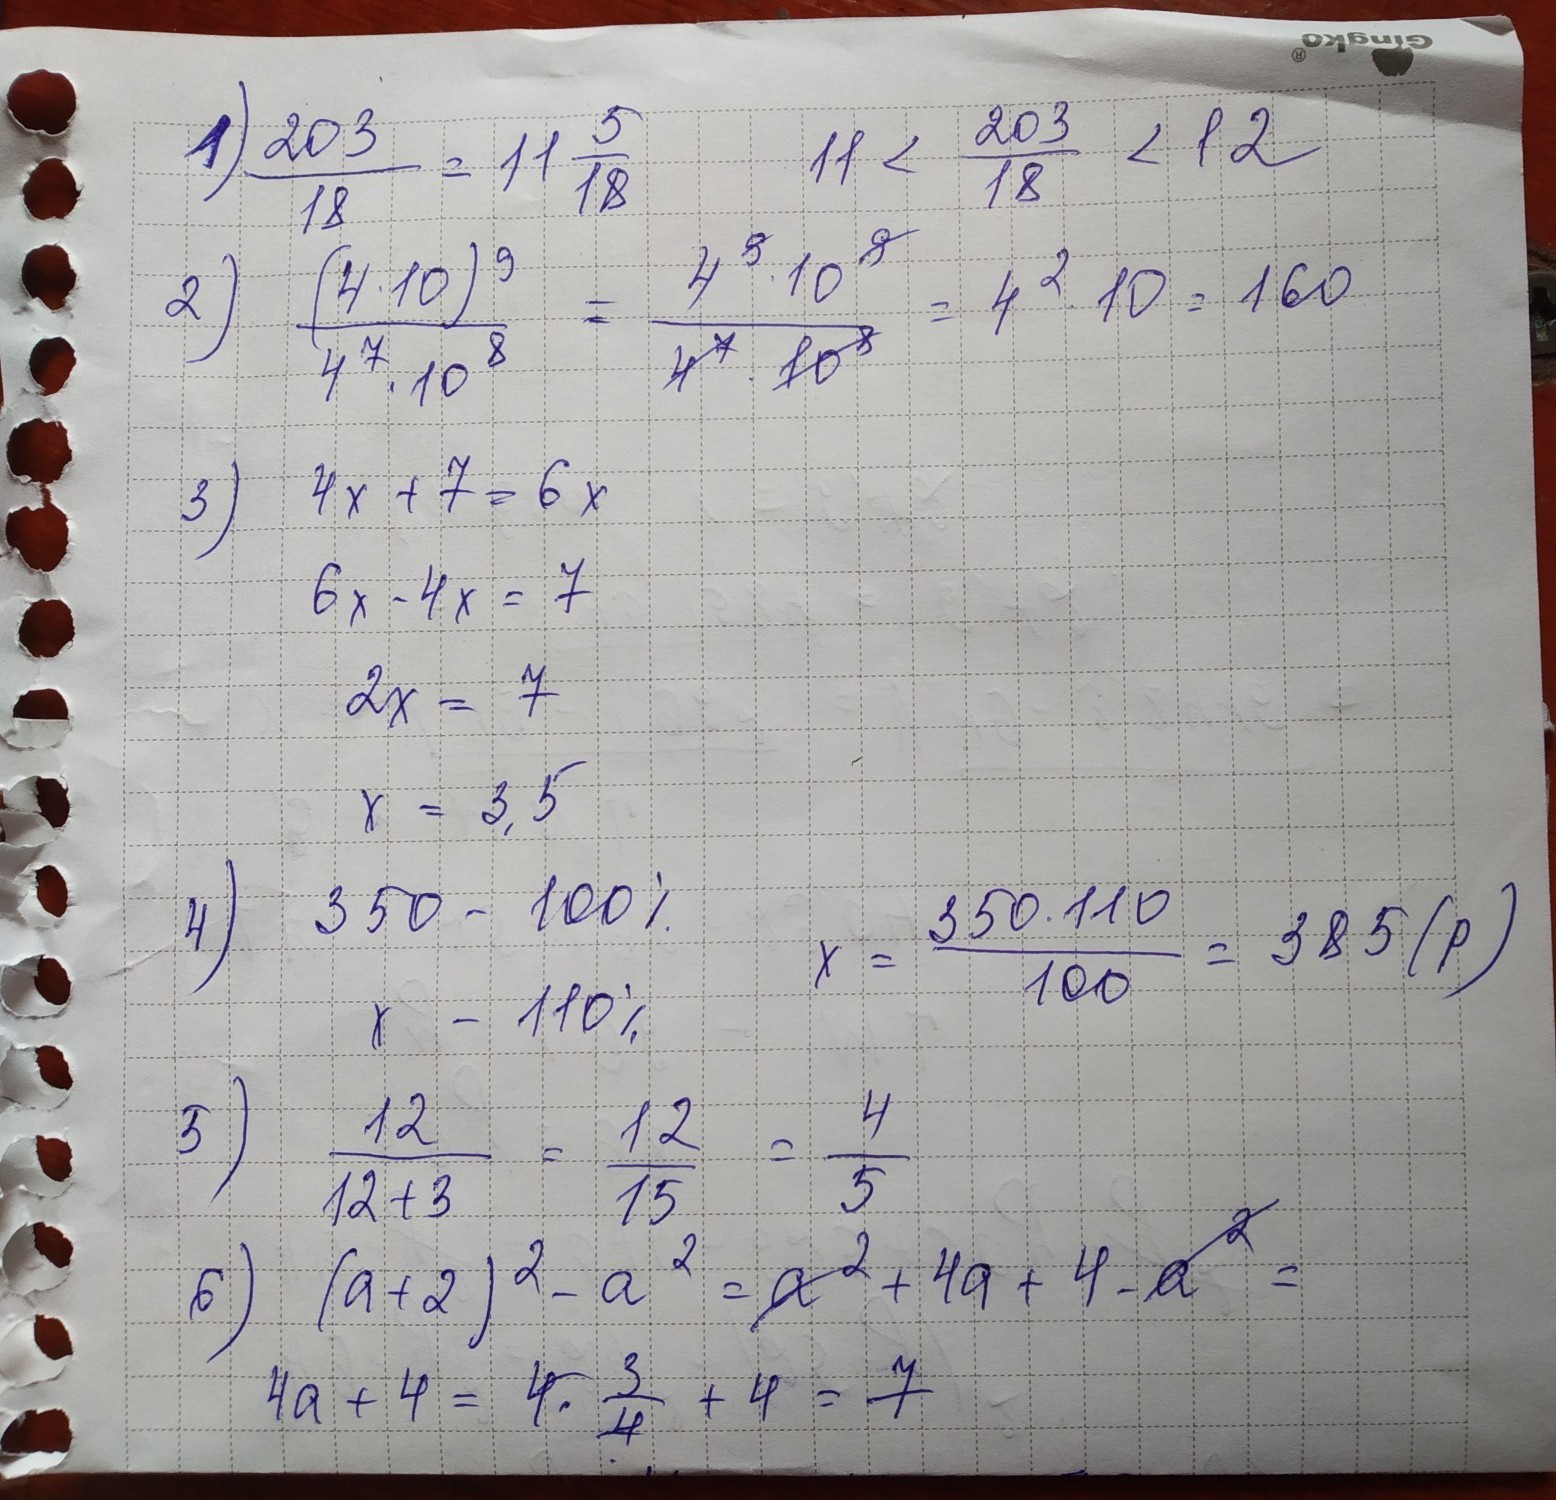 Gingko®
1) 203/18 = 11 5/18 11 < 203/18 < 12
2) (4·10)^9 / 4^7·10^8 = 4^9·10^9 / 4^7·10^8 = 4^2·10 = 160
3) 4x + 7 = 6x
6x - 4x = 7
2x = 7
x = 3,5
4) 350 - 100% x = 350·110/100 = 385 (р)
x - 110%
5) 12/12+3 = 12/15 = 4/5
6) (a+2)^2 - a^2 = a^2 + 4a + 4 - a^2 =
4a + 4 = 4·3/4 + 4 = 7